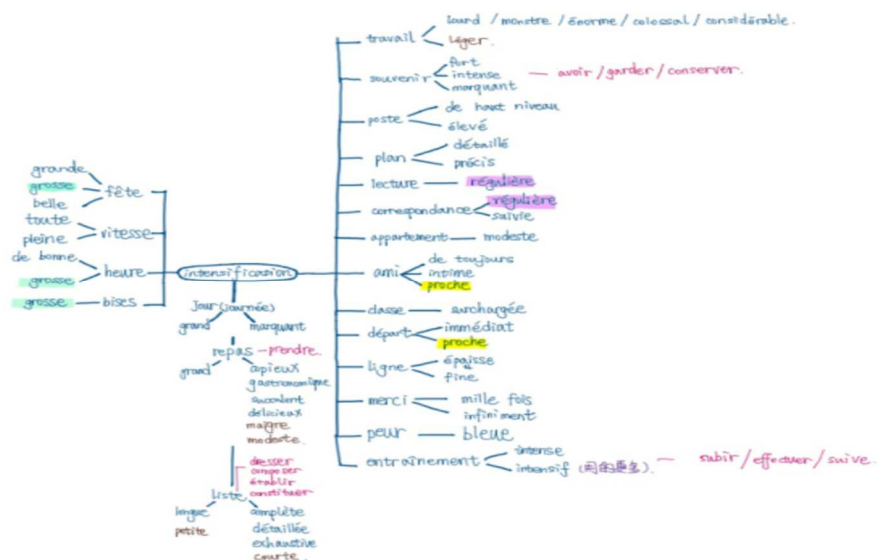 grande
grosse
belle
fête
toute
pleine
vitesse
de bonne
grosse
heure
grosse
bises
intensification
Jour(journée)
grand
marquant
repas — prendre
grand
copieux
gastronomique
succulent
délicieux
maigre
modeste
dresser
composer
établir
constituer
liste
longue
petite
complète
détaillée
exhaustive
courte
travail
lourd / monstre / énorme / colossal / considérable.
léger.
souvenir
fort
intense
marquant
— avoir / garder / conserver.
poste
de haut niveau
élevé
plan
détaillé
précis
lecture — régulière
correspondance
régulière
suivie
appartement — modeste
ami
de toujours
intime
proche
classe — surchargée
départ
immédiat
proche
ligne
épaisse
fine
merci
mille fois
infiniment
peur — bleue
entraînement
intense
intensif (用的更多).
— subir / effectuer / suive.